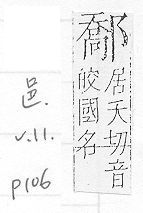 居夭切音
皎國名
邑.
v.11.
p106